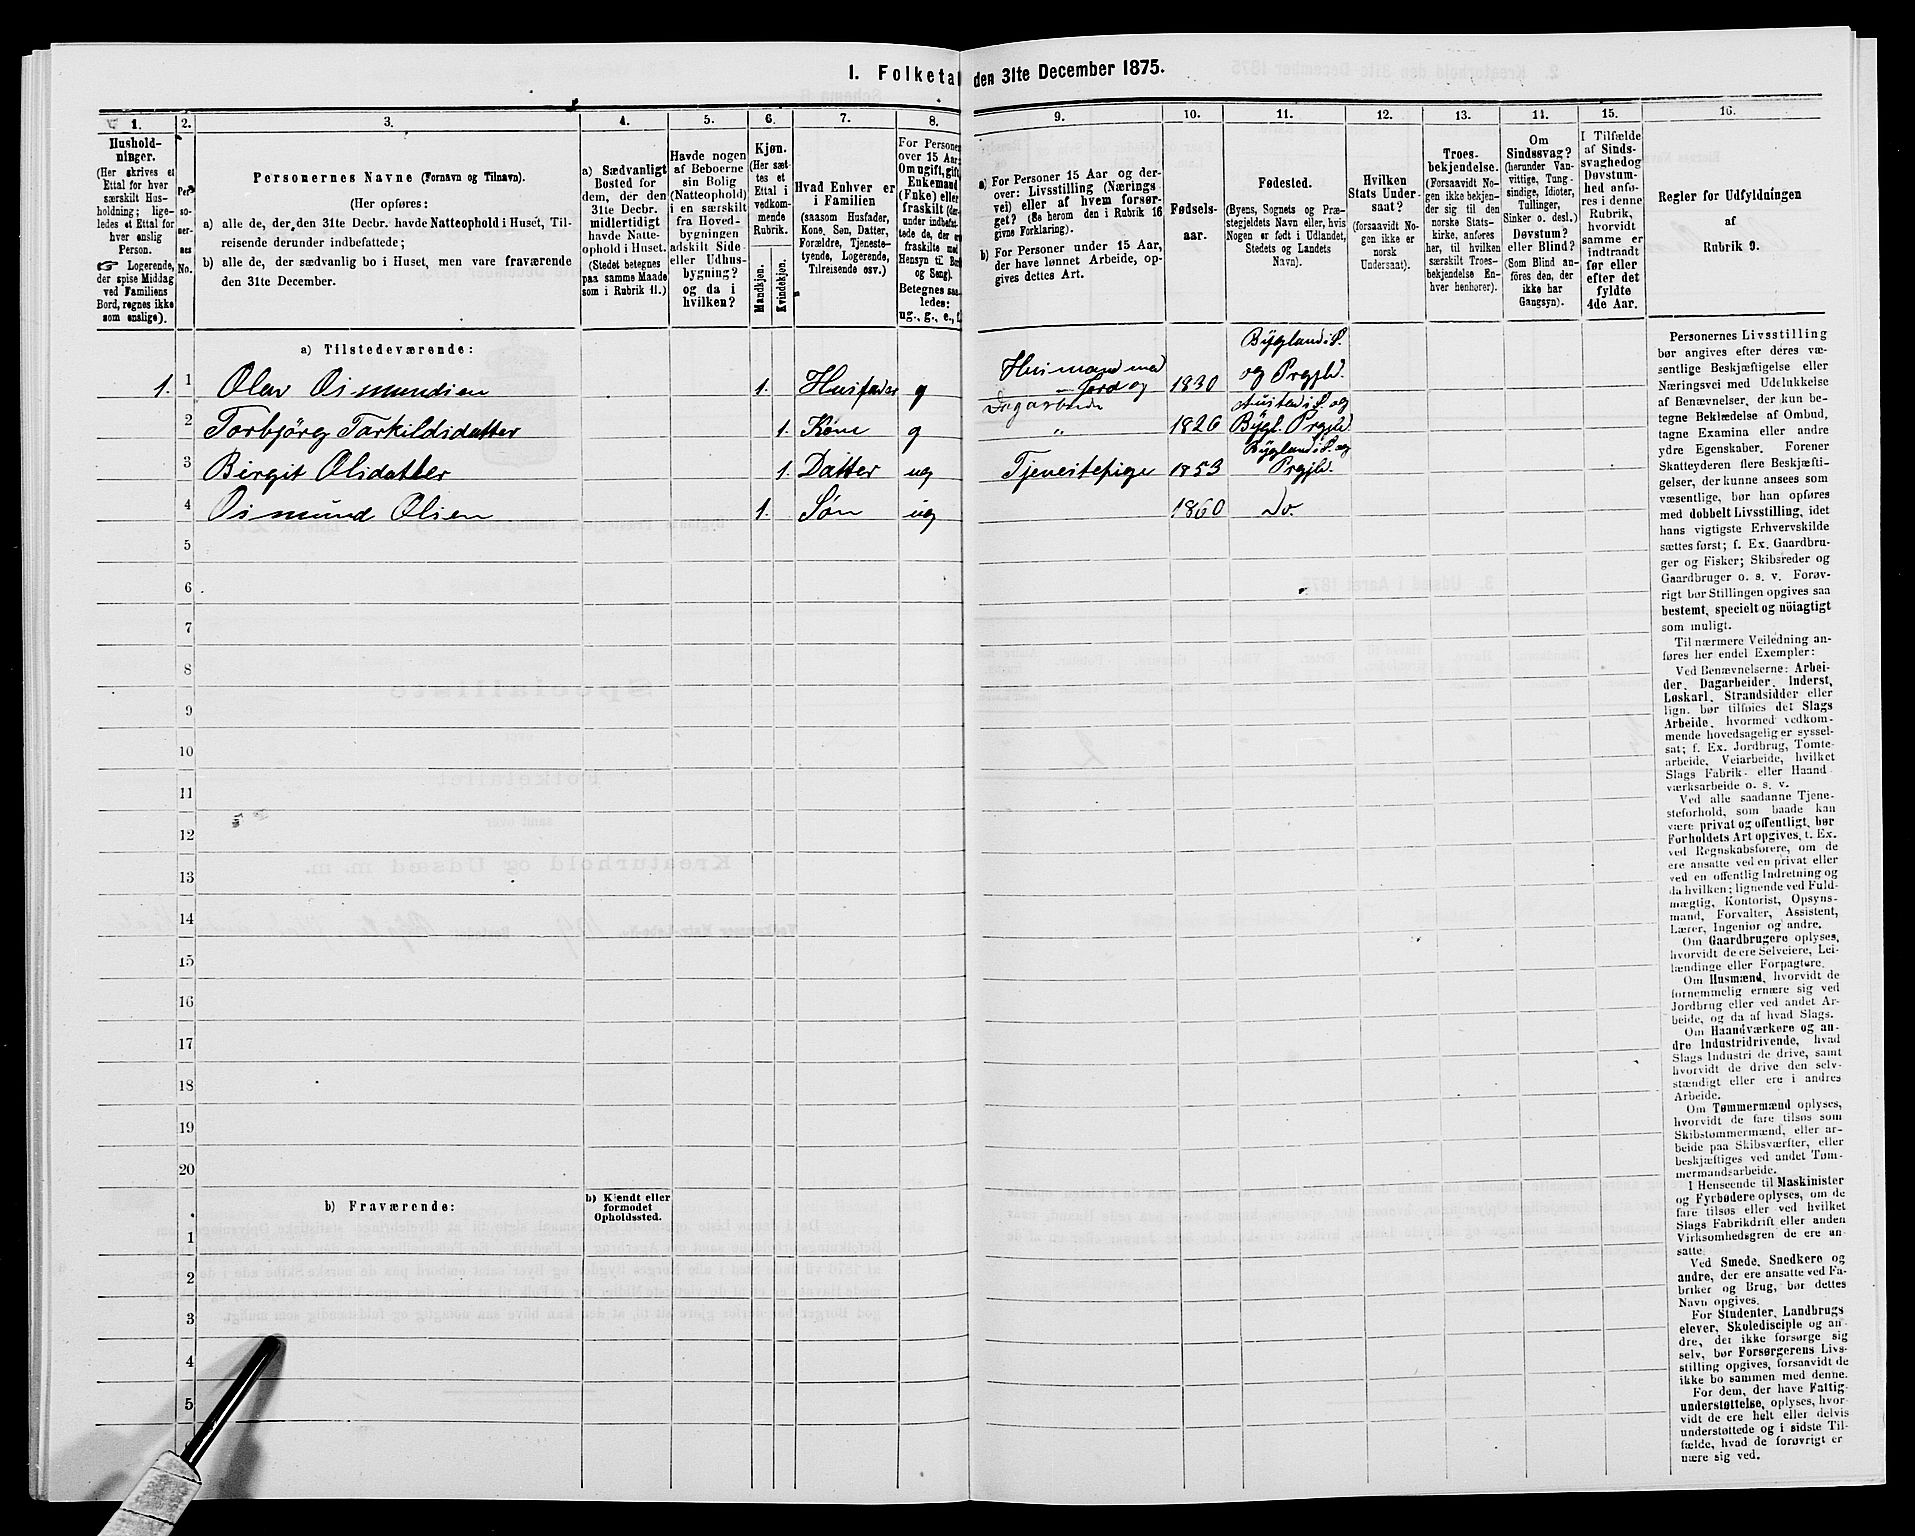 I. Folketal den 31te December 1875.
1.
2.
3.
4.
5.
6.
7.
8.
9.
10.
11.
12.
13.
14.
15.
16.
Hushold-
ninger.
(Her skrives et
Ettal for hver
særskilt Hus-
holdning; lige-
ledes et Ettal for
hver enslig
Person.
☞ Logerende,
der spise Middag
ved Familiens
Bord, regnes ikke
som enslige).
Per-
so-
ner-
nes
No.
Personernes Navne (Fornavn og Tilnavn).
(Her opføres:
a) alle de, der, den 31te Decbr. havde Natteophold i Huset, Til-
reisende derunder indbefattede;
b) alle de, der sædvanlig bo i Huset, men vare fraværende
den 31te December.
a) Sædvanligt
Bosted for
dem, der den
31te Decbr.
midlertidigt
havde Natte-
ophold i Huset.
(Stedet betegnes
paa samme Maade
som i Rubrik 11.)
Havde nogen
af Beboerne
sin Bolig
(Natteophold)
i en særskilt
fra Hoved-
bygningen
adskilt Side-
eller Udhus-
bygning?
og da i
hvilken?
Kjøn.
(Her sæt-
tes et
Ettal i
vedkom-
mende
Rubrik.
Mandkjøn.
Kvindekjøn.
Hvad Enhver er
i Familien
(saasom Husfader,
Kone, Søn, Datter,
Forældre, Tjeneste-
tyende, Logerende,
Tilreisende osv.)
For Personer
over 15 Aar:
Om ugift, gift,
Enkemand
(Enke) eller
fraskilt (der-
under indbefat-
tede de, der ere
fraskilte med
Hensyn til Bord
og Seng).
Betegnes saa-
ledes:
ug., g., e., f.
a) For Personer 15 Aar og der-
over: Livsstilling (Nærings
vei) eller af hvem forsør-
get? (Se herom den i Rubrik 16
givne Forklaring).
b) For Personer under 15 Aar,
der have lønnet Arbeide, op-
gives dettes Art.
Fødsels-
aar.
Fødested.
(Byens, Sognets og Præ-
stegjeldets Navn eller, hvis
Nogen er født i Udlandet,
Stedets og Landets
Navn).
Hvilken
Stats Under-
saat?
(forsaavidt No-
gen ikke er
norsk
Undersaat).
Troes-
bekjendelse.
(Forsaavidt No-
gen ikke bekjen-
der sig til den
norske Stats-
kirke, anføres
her, til hvilken
særskilt Troes-
bekjendelse En-
hver henhører).
Om
Sindssvag?
(herunder Van-
vittige, Tung-
sindige, Idioter,
Tullinger,
Sinker o. desl.)
Døvstum?
eller Blind?
(Som Blind an-
føres den, der
ikke har
Gangsyn).
I Tilfælde
af Sinds-
svaghed og
Døvstum-
hed anfø-
res i denne
Rubrik,
hvorvidt
samme er
indtraadt
før eller
efter det
fyldte
4de Aar.
Regler for Udfyldningen
af
Rubrik 9.
a) Tilstedeværende:
1. 1 Olav Osmundsen 1. Husfader g Husmand med Jord og Dagarbeide 1830 Bygland i S. og Prgjld.
2 Torbjörg Tarkildsdatter 1. Kone g „ 1826 Austad i S. og Bygl. Prgjld.
3 Birgit Olsdatter 1. Datter ug Tjenestepige 1853 Bygland i S. og Prgjld.
4 Osmund Olsen 1. Søn ug 1860 Do.
5
6
7
8
9
10
11
12
13
14
15
16
17
18
19
20
b) Fraværende:
b) Kjendt eller
formodet
Opholdssted.
1
2
3
4
5
Personernes Livsstilling
bør angives efter deres væ-
sentlige Beskjæftigelse eller
Næringsvei med Udelukkelse
af Benævnelser, der kun be-
tegne Beklædelse af Ombud,
tagne Examina eller andre
ydre Egenskaber. Forener
Skatteyderen flere Beskjæfti-
gelser, der kunne ansees som
væsentlige, bør han opføres
med dobbelt Livsstilling, idet
hans vigtigste Erhvervskilde
sættes først; f. Ex. Gaardbru-
ger og Fisker; Skibsreder og
Gaardbruger o. s. v. Forøv-
rigt bør Stillingen opgives saa
bestemt, specielt og nöiagtigt
som muligt.
Til nærmere Veiledning an-
føres her endel Exempler:
Ved Benævnelserne: Arbei-
der, Dagarbeider, Inderst,
Løskarl, Strandsidder eller
lign. bør tilføies det Slags
Arbeide, hvormed vedkom-
mende hovedsagelig er syssel-
sat; f. Ex. Jordbrug, Tomte-
arbeide, Veiarbeide, hvilket
Slags Fabrik- eller Haand
værksarbeide o. s. v.
Ved alle saadanne Tjene-
steforhold, som baade kan
være privat og offentligt, bør
Forholdets Art opgives, t. Ex.
ved Regnskabsførere, om de
ere ansatte ved en privat eller
ved en offentlig Indretning og
da hvilken; lignende ved Fuld-
mægtig, Kontorist, Opsyns-
mand, Forvalter, Assistent,
Lærer, Ingeniør og andre.
Om Gaardbrugere oplyses,
hvorvidt de ere Selveiere, Lei-
lændinge eller Forpagtere.
Om Husmænd, hvorvidt de
fornemmelig ernære sig ved
Jordbrug eller ved andet Ar-
beide, og da af hvad Slags.
Om Haandværkere og an-
dre Industridrivende, hvad
Slags Industri de drive, samt
hvorvidt de drive den selv-
stændigt eller ere i andres
Arbeide.
Om Tømmermænd oplyses,
hvorvidt de fare tilsøs som
Skibstømmermænd, eller ar-
beide paa Skibsværfter, eller
beskjæftiges ved andet Tøm-
mermandsarbeide.
I Henseende til Maskinister
og Fyrbødere oplyses, om de
fare tilsøs eller ved hvilket
Slags Fabrikdrift eller anden
Virksomhedsgren de ere an-
satte.
Ved Smede, Snedkere og
andre, der ere ansatte ved Fa-
briker og Brug, bør dettes
Navn opgives.
For Studenter, Landbrugs
elever, Skoledisciple og an-
dre, der ikke forsørge sig
selv, bør Forsørgerens Livs-
stilling opgives, forsaavidt de
ikke bo sammen med denne.
For dem, der have Fattig-
understøttelse, oplyses, hvor-
vidt de ere helt eller delvis
understøttede og i sidste Til-
fælde, hvad de forøvrigt er
nære sig ved.